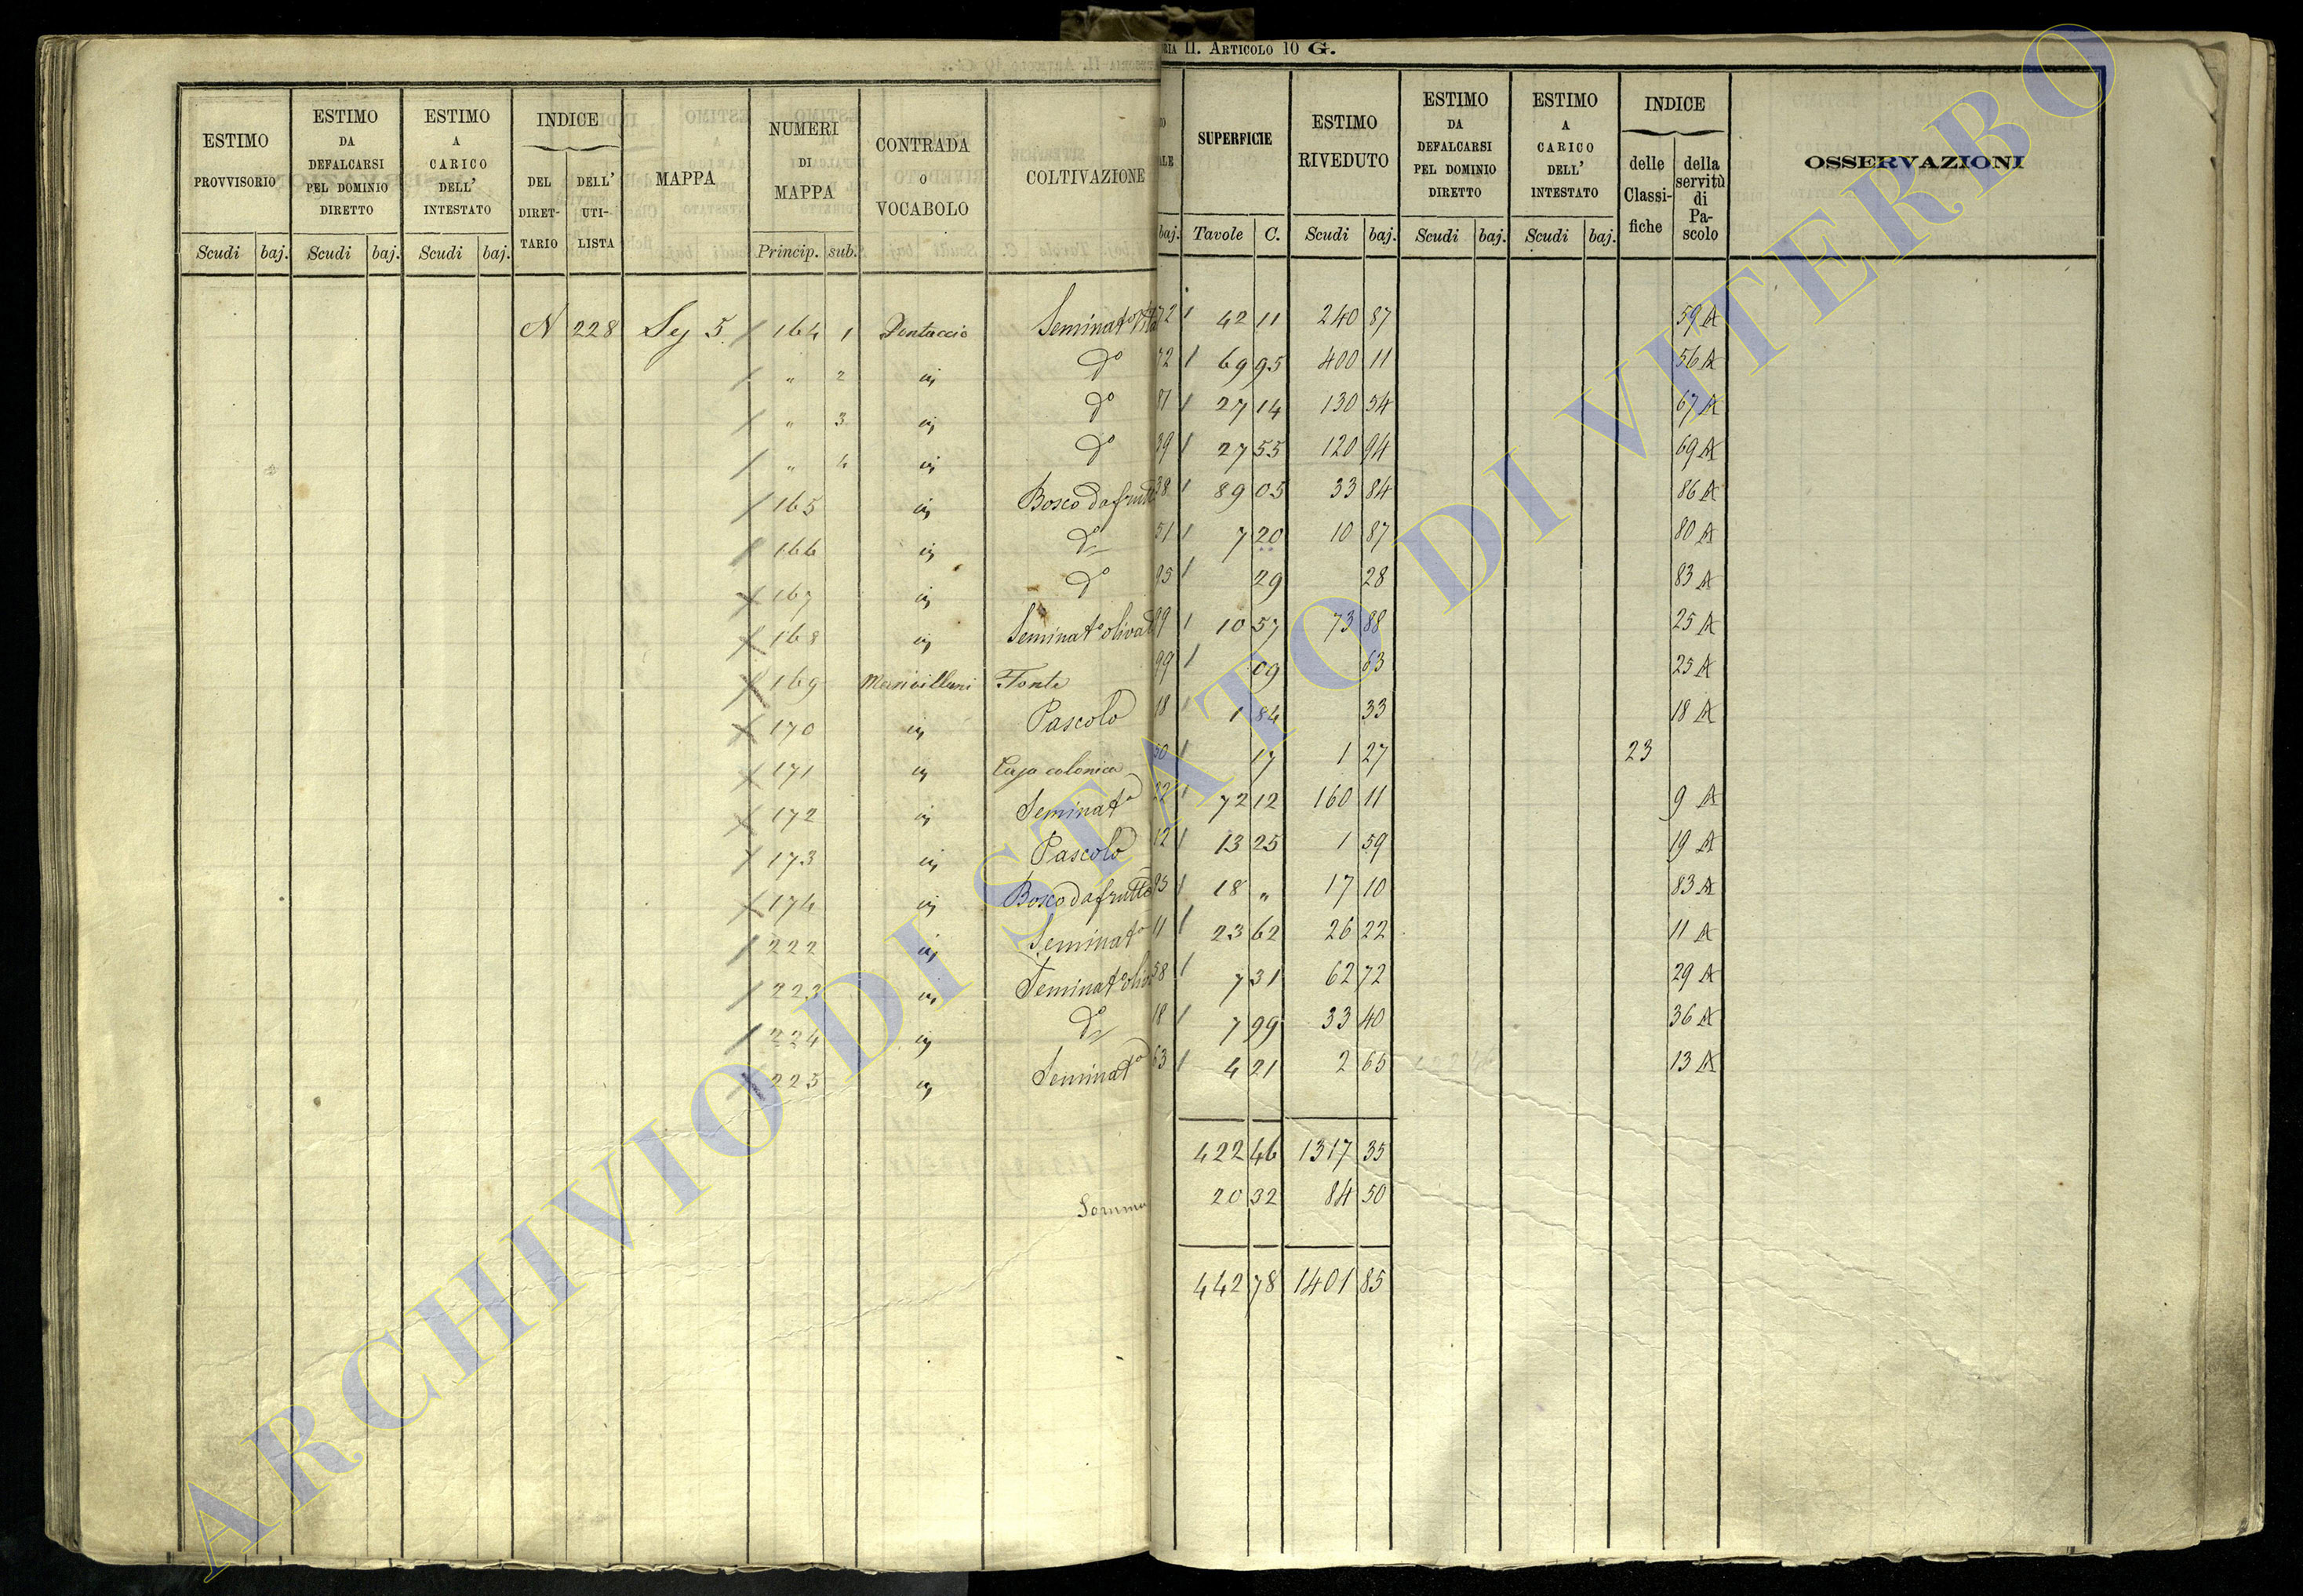 RIA II. ARTICOLO 10 G.
ESTIMO PROVVISORIO
Scudi baj.
ESTIMO DA DEFALCARSI PEL DOMINIO DIRETTO
Scudi baj.
ESTIMO A CARICO DELL' INTESTATO
Scudi baj.
INDICE
DEL DIRETTARIO
DELL' UTILISTA
MAPPA
NUMERI DI MAPPA
Princip. sub.
CONTRADA O VOCABOLO
COLTIVAZIONE
baj.
SUPERFICIE
Tavole C.
ESTIMO RIVEDUTO
Scudi baj.
ESTIMO DA DEFALCARSI PEL DOMINIO DIRETTO
Scudi baj.
ESTIMO A CARICO DELL' INTESTATO
Scudi baj.
INDICE
delle Classifiche
della servitù di Pascolo
OSSERVAZIONI
N 228 Sez 5 / 164 1 Pentaccio Seminat° Vita 72 / 42 11 240 87 59 A
/ " 2 in d° 72 / 69 95 400 11 56 A
/ " 3 in d° 81 / 27 14 130 54 67 A
/ " 4 in d° 39 / 27 55 120 94 69 A
/ 165 in Bosco da frutto 38 / 89 05 33 84 86 A
/ 166 in d° 51 / 7 20 10 87 80 A
167 in d° 95 / 29 28 83 A
168 in Seminat° olivat 99 / 10 57 73 88 25 A
169 Fonte 99 / 09 63 25 A
170 in Pascolo 18 / 1 84 33 18 A
171 in Casa colonica 50 / 17 1 27 23
172 in Seminat° 22 / 72 12 160 11 9 A
173 in Pascolo 12 / 13 25 1 59 19 A
174 in Bosco da frutto 95 / 18 " 17 10 83 A
/ 222 in Seminat° 11 / 23 62 26 22 11 A
/ 223 in Seminat° oliv 58 / 7 31 62 72 29 A
/ 224 in d° 18 / 7 99 33 40 36 A
225 in Seminat° 63 / 4 21 2 65 13 A
422 46 1317 35
Somma 20 32 84 50
442 78 1401 85
ARCHIVIO DI STATO DI VITERBO